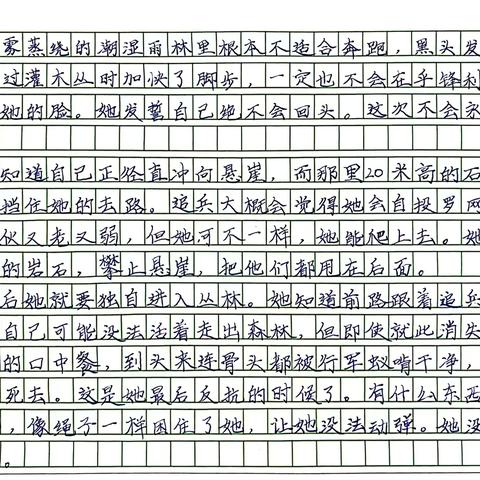 雾蒸绕的潮湿雨林里根本不适合奔跑，黑头发
过灌木丛时加快了脚步，一定也不会在乎锋利
她的脸。她发誓自己绝不会回头。这次不会永
知道自己正径直冲向悬崖，而那里20米高的石
挡住她的去路。追兵大概会觉得她会自投罗网
伙又老又弱，但她可不一样，她能爬上去。她
的岩石，攀上悬崖，把他们都甩在后面。
后她就要独自进入丛林。她知道前路跟着追兵
自己可能没法活着走出森林，但即使就此消失
的口中餐，到头来连骨头都被行军蚁啃干净，
死去。这是她最后反抗的时候了。有什么东西
，像绳子一样困住了她，让她没法动弹。她没
。